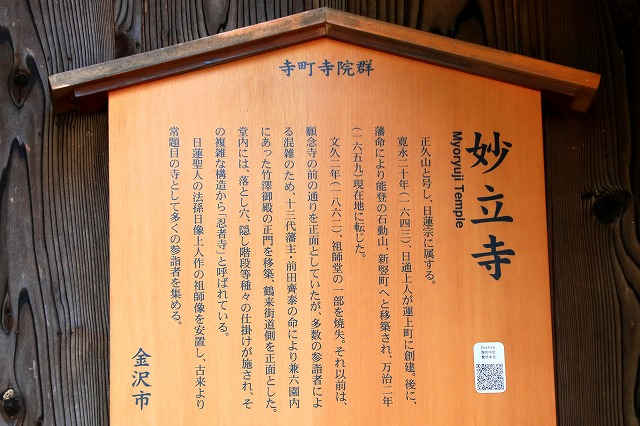 寺町寺院群
妙立寺
Myoryuji Temple
正久山と号し、日蓮宗に属する。
寛永二十年(一六四三)、日通上人が運上町に創建。後に、
藩命により能登の石動山、新竪町へと移築され、万治二年
(一六五九)現在地に転じた。
文久二年(一八六二)、祖師堂の一部を焼失。それ以前は、
願念寺の前の通りを正面としていたが、多数の参詣者によ
る混雑のため、十三代藩主・前田齊泰の命により兼六園内
にあった竹澤御殿の正門を移築、鶴来街道側を正面とした。
堂内には、落とし穴、隠し階段等種々の仕掛けが施され、そ
の複雑な構造から「忍者寺」と呼ばれている。
日蓮聖人の法孫日像上人作の祖師像を安置し、古来より
常題目の寺として多くの参詣者を集める。
金沢市
English